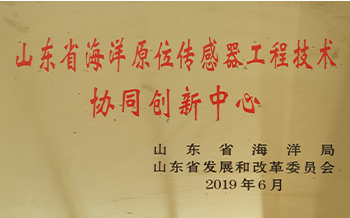 山东省海洋原位传感器工程技术
协同创新中心
山东省海洋局
山东省发展和改革委员会
2019年6月